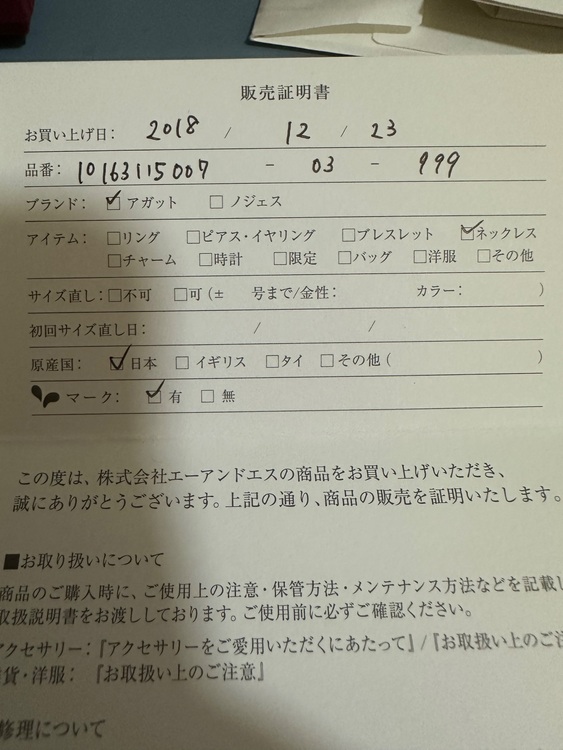 販売証明書
お買い上げ日： 2018 / 12 / 23
品番： 10163115007 - 03 - 999
ブランド： ☑ アガット □ ノジェス
アイテム： □リング □ピアス・イヤリング □ブレスレット ☑ネックレス
□チャーム □時計 □限定 □バッグ □洋服 □その他
サイズ直し： □不可 □可（± 号まで/金性： カラー： ）
初回サイズ直し日： / /
原産国： ☑日本 □ イギリス □タイ □ その他（ ）
マーク： ☑ 有 □ 無
この度は、株式会社エーアンドエスの商品をお買い上げいただき、
誠にありがとうございます。上記の通り、商品の販売を証明いたします。
■お取り扱いについて
商品のご購入時に、ご使用上の注意・保管方法・メンテナンス方法などを記載し
取扱説明書をお渡ししております。ご使用前に必ずご確認ください。
アクセサリー：『アクセサリーをご愛用いただくにあたって』/『お取扱い上のご注
貨・洋服： 『お取扱い上のご注意』
修理について